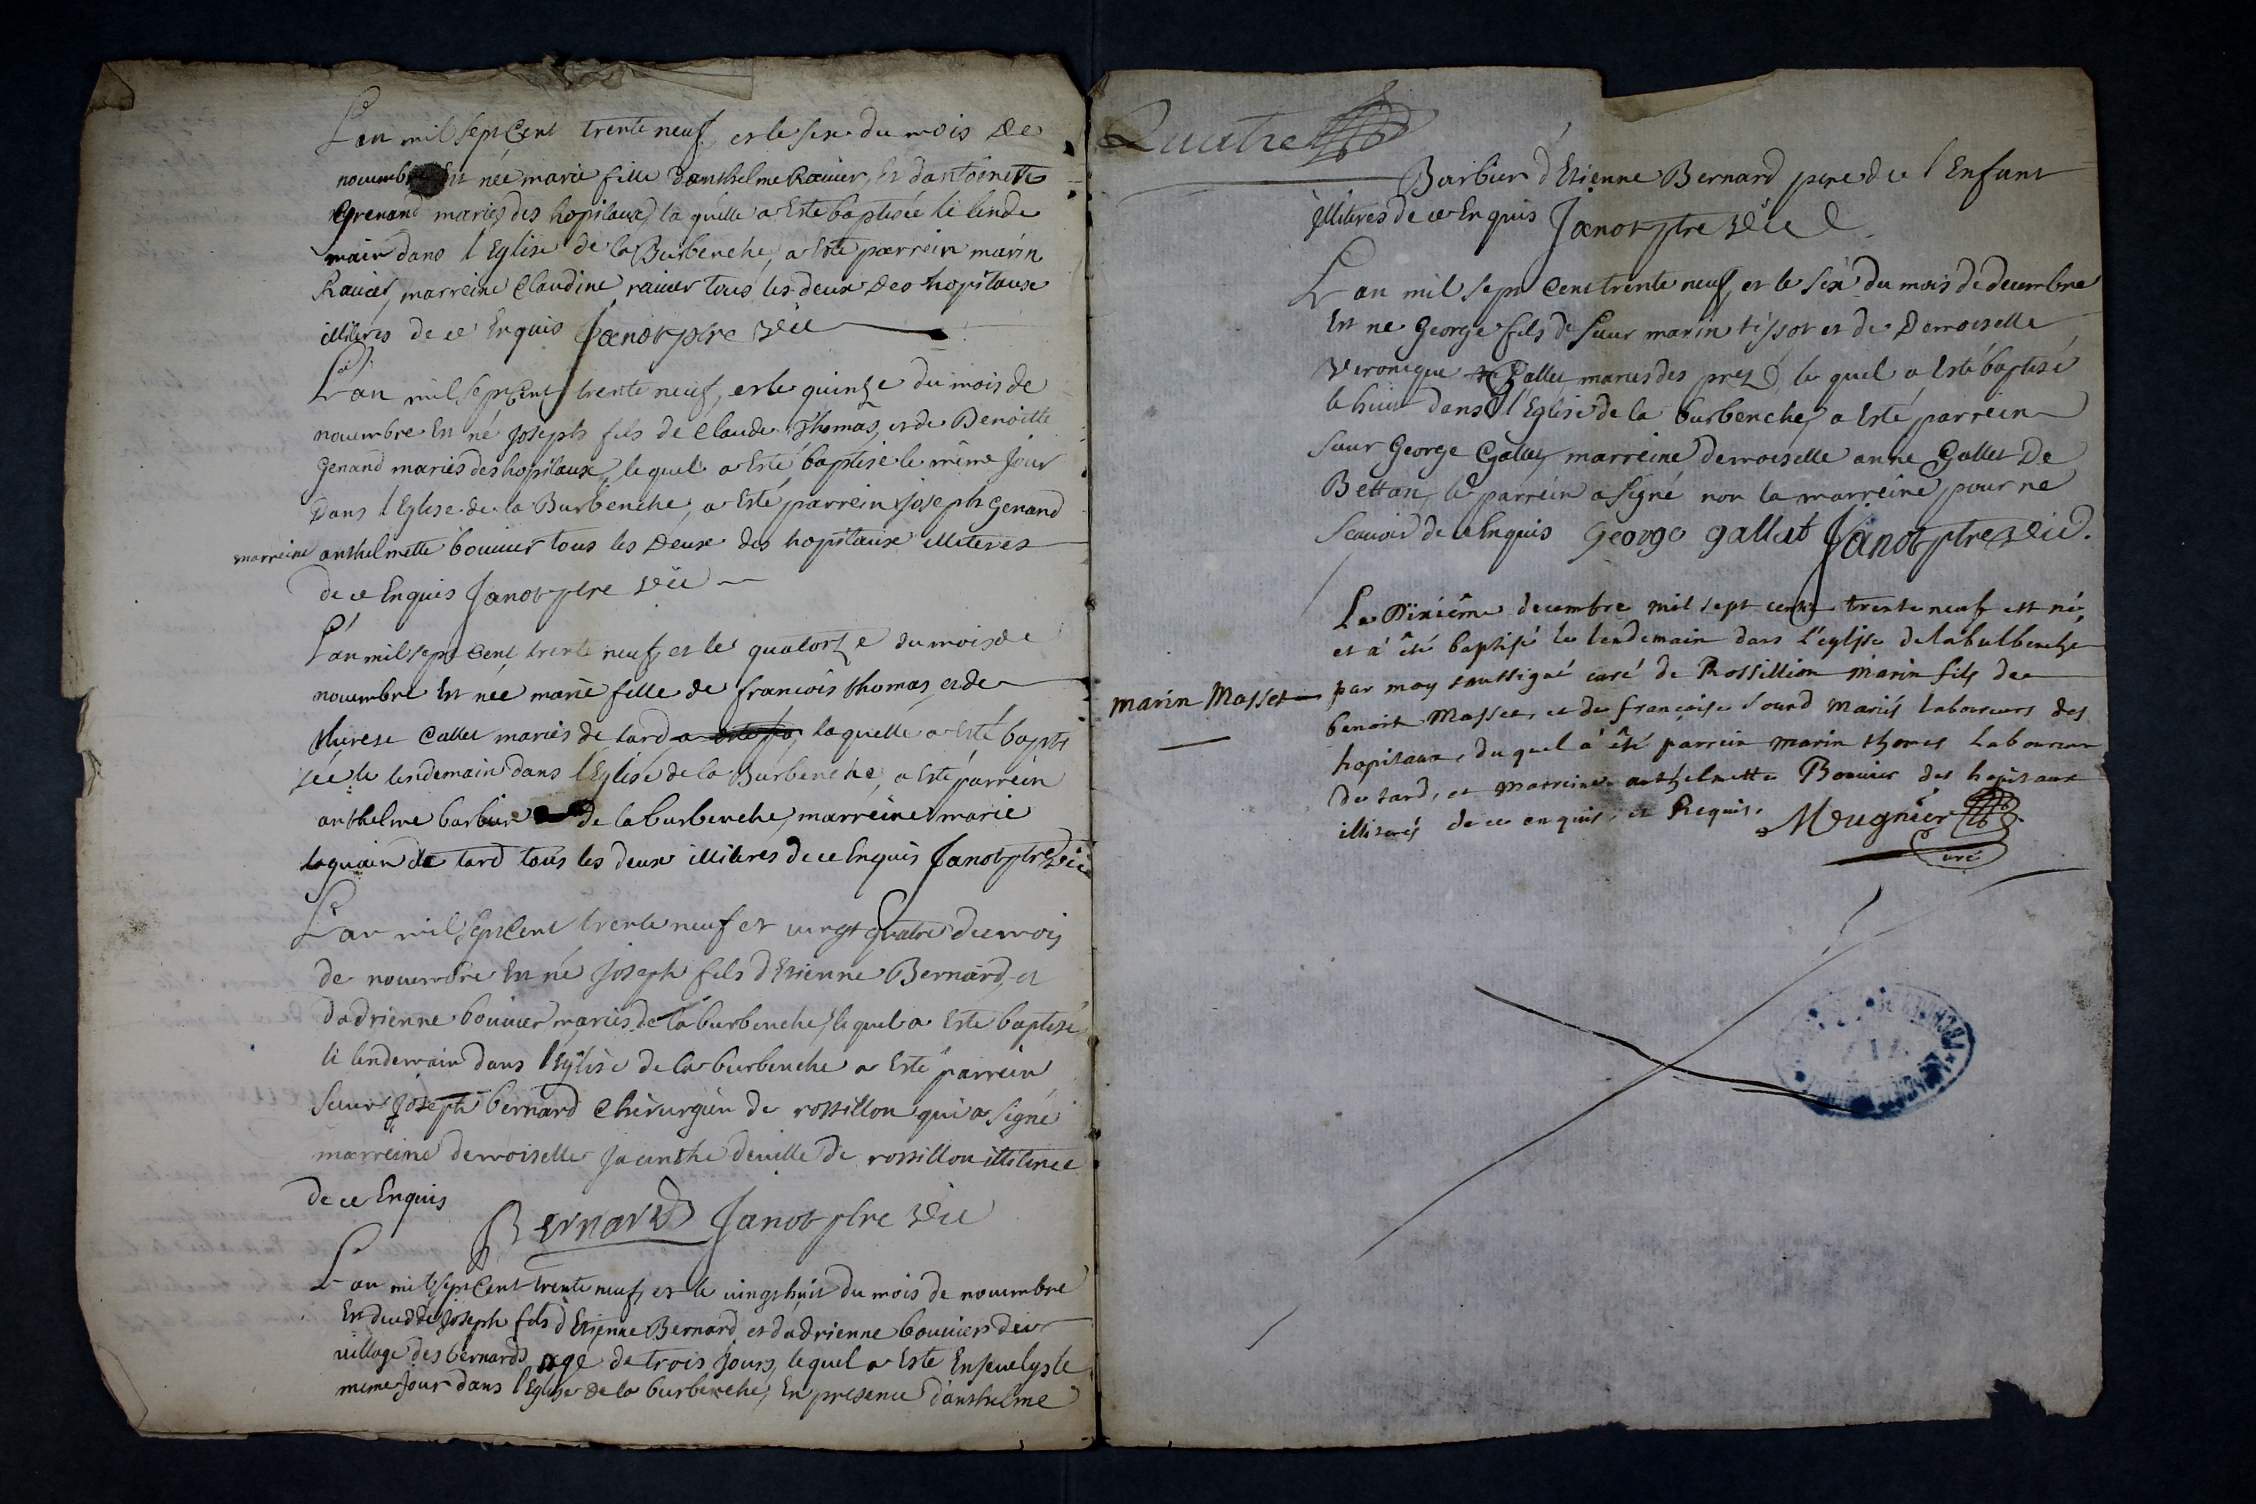 L'an mil sept Cent trente neuf, et le six du mois de
novembre Est née marie fille d'anthelme Ravier, Et d'antoinette
Grenand mariés des hopitaux, la quelle a Esté baptisée le lende
main dans l'Eglise de la Burbenche, a Esté parrein marin
Ravier, marreine Claudine ravier tous les deux des hopitaux
illiteres de ce Enquis Janot ptre vic
L'an mil sept Cent trente neuf, et le quinze du mois de
novembre Est né Joseph fils de Claude Thomas, et de Benoitte
Genand mariés des hopitaux, lequel a Esté baptisé le même Jour
Dans l'Eglise de la Burbenche, a Esté parrein Joseph Genand
marreine anthelmette bouvier tous les Deux des hopitaux illiteres
de ce Enquis Janot ptre vic
L'an mil sept Cent trente neuf, et le quatorze du mois de
novembre Est née marie fille de francois thomas, et de
therese Callet mariés de tard a esté ba, laquelle a Esté bapti
sée le lendemain dans l'Eglise de la Burbenche, a Esté parrein
anthelme barbier de la burbenche, marreine marie
de tard tous les deux illiteres de ce Enquis Janot ptre vic
L'an mil sept Cent trente neuf et vingt quatre du mois
de novembre Est né Joseph fils d'Etienne Bernard, et
d'adrienne bouvier mariés de la burbenche, lequel a Esté baptisé
le lendemain dans l'Eglise de la burbenche a Esté parrein
Sieur Joseph bernard Chirurgien de rossillon qui a Signé
marreine demoiselle Jacinthe deville de rossillon illiteree
de ce Enquis
Bernard Janot ptre vic
L'an mil sept Cent trente neuf, et le vingt huit du mois de novembre
Est decedé Joseph fils d'Etienne Bernard, et d'adrienne bouvier du
village des bernards agé de trois Jours, lequel a Esté Ensevely le
meme Jour dans l'Eglise de la burbenche, En presence d'anthelme
Quatre
Barbier d'Etienne Bernard pere de l'Enfant
illiteres de ce Enquis Janot ptre vic
L'an mil sept Cent trente neuf, et le six du mois de decembre
Est né George fils de Sieur marin tissot et de Demoiselle
Veronique Gallet mariés des prez, le quel a Esté baptisé
le huit dans l'Eglise de la burbenche, a Esté parrein
Sieur George Gallet, marreine demoiselle anne Gallet De
Bettan, le parrein a Signé non la marreine pour ne
Scavoir de ce Enquis George gallet Janot ptre vic.
Le Dixiême decembre mil sept cent trente neuf est né,
et a été baptisé le lendemain dans l'église de laburbenche
par moy soussigné curé de Rossillion marin fils de
marin Masset
benoit Masset, et de françoise Sourd mariés laboureurs des
hopitaux, du quel a été parrein marin thomas laboureur
de tard, et marreine anthelmette Bouvier des hopitaux
illiterés de ce enquis, et Requis. Meugnier
curé